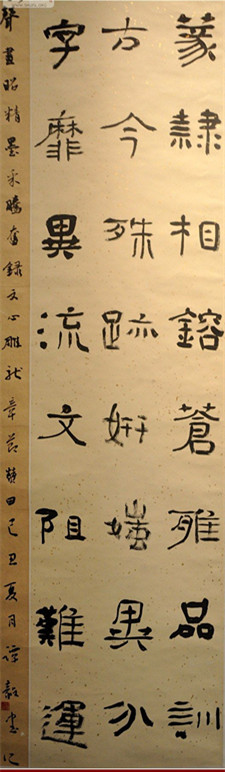 篆隸相鎔蒼雅品訓
古今殊跡妍媸異分
字靡異流文阻難運
聲畫昭精墨采騰奮錄文心雕龍章節己丑夏月書